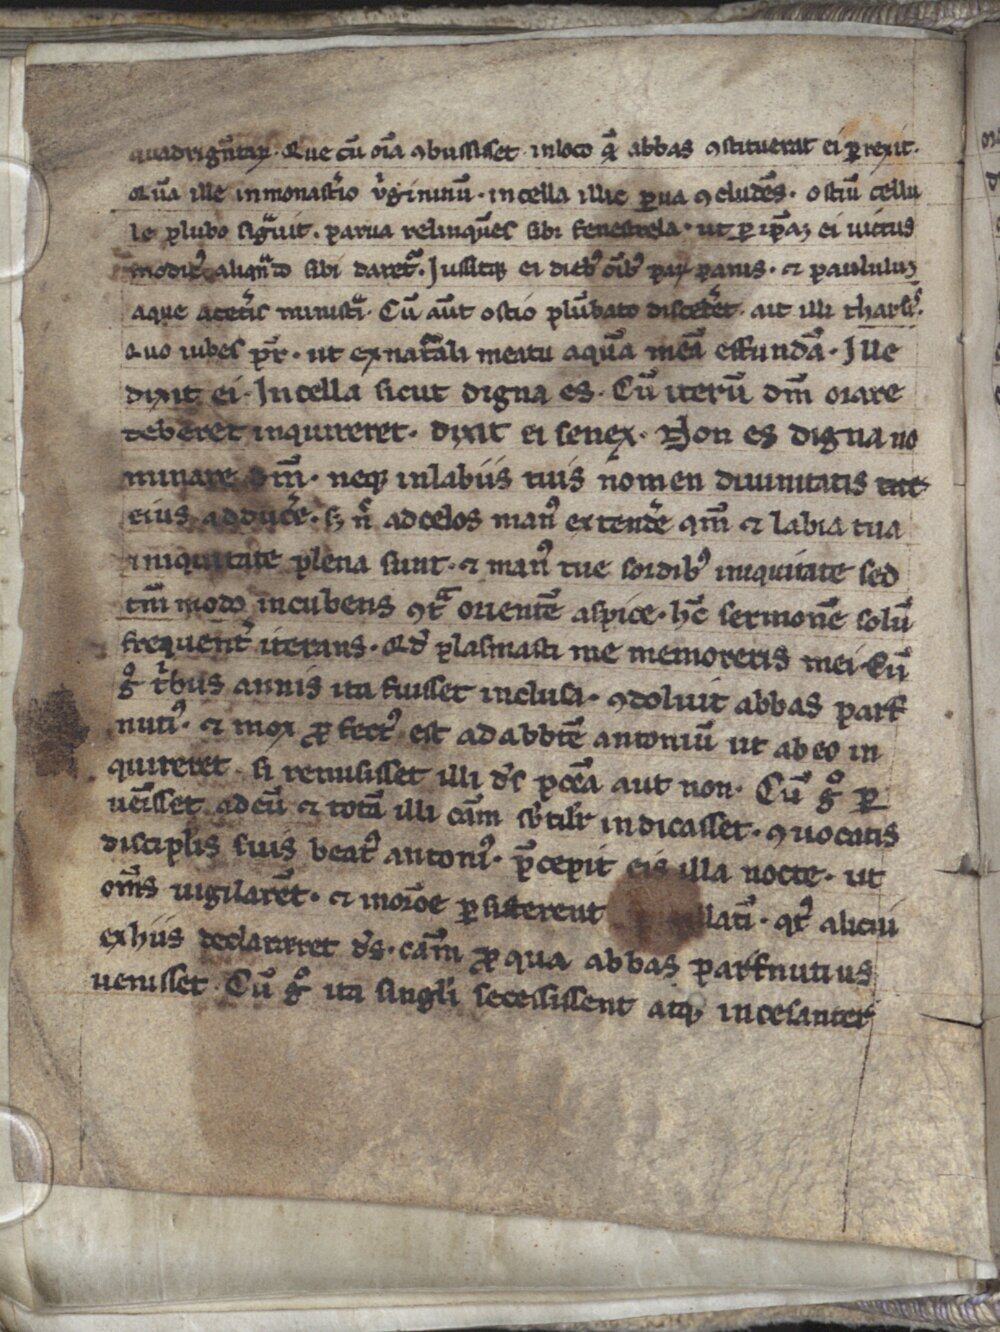 quadrigētarū. Que cū oīa ꝯbussisset inloco qͫ abbas ꝯstituerat ei ꝑrexit.
Quā ille inmonast̄io v̄ginum̄. incella illic ꝑua ꝯcludēs. ostiū cellu
le plūbo sigͣuit. parua relinquēs sibi fenestrela. ut ꝑ ip̄aꝫ ei uictus
modicꝰ aliqn̄do sibi daret᷑. Jussitqꝫ ei dieb᷒ oīb᷒ paꝝ panis. ⁊ paululuꝫ
aque a cet̄is ministͣri. Cū aūt ostio plūbato discederet. ait illi tharsis.
Quo iubes pr̄. ut exnat̄ali meatu aquā meā effundā. Ille
dixit ei. Incella sicut digna es. Cū iterū dm̄ orare
deberet inquireret. dixit ei senex. Non es digna no
minare dm̄. neqꝫ inlabiis tuis nomen diuinitatis
eius adducē. sꝫ n̄ adcelos manꝰ extendē qm̄ ⁊ labia tua
iniquitate plena sunt. ⁊ manꝰ tue sordibꝰ iniquitate sed
tm̄ modo incubens ꝯtͣ orientē aspice. hc̄ sermonē solū
frequent̄ iterans. Qd̄ plasmasti me memoreris mei. Cū
gͦ tͥbus annis ita fuisset inclusa. ꝯdoluit abbas paf
nutiꝰ. ⁊ mox ꝓfectꝰ est ad abbtē antoniū ut ab eo in
quireret. si remisisset illi ds̄ pccā aut non. Cū gͦ ꝑ
uēisset ad eū ⁊ totā illi cām sb̄tilr̄ indicasset. ꝯuocatis
discipl̄is suis beatꝰ antoniꝰ. p̄cepit eis illa nocte. ut
om̄s uigilarēt. ⁊ inoroē ꝑsisterent llati. qtꝰ alicui
exhiis declararet ds̄. cām ꝓ qua abbas pafnutius
uenisset. Cū gͦ ita singli secessissent atqꝫ incesanter